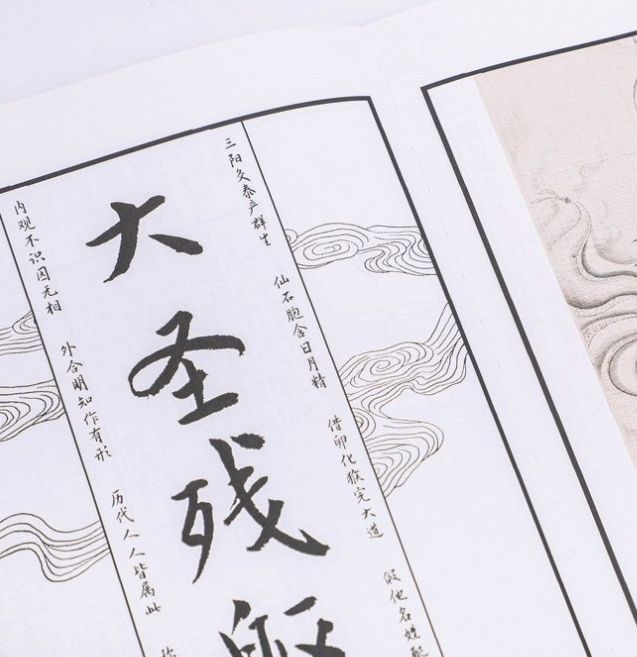 三阳交泰产群生 仙石胞含日月精 借卵化猴完大道 假他名姓配
大圣残躯
内观不识因无相 外合明知作有形 历代人人皆属此